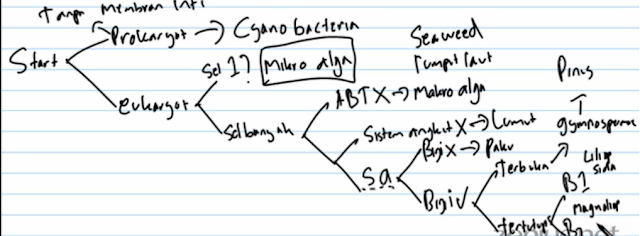 Tanpa Membran Inti
Start
Prokaryot → Cyanobacteria
Eukaryot
Sel 1?
Mikro alga
Sel banyak
Seaweed
Rumput laut
ABT X → Makro alga
Sistem angkut X → Lumut
SA
Biji X → Paku
Biji √
Terbuka
gymnosperm
Pinus
tertutup
B1
Liliop
sida
Magnoliop
B2